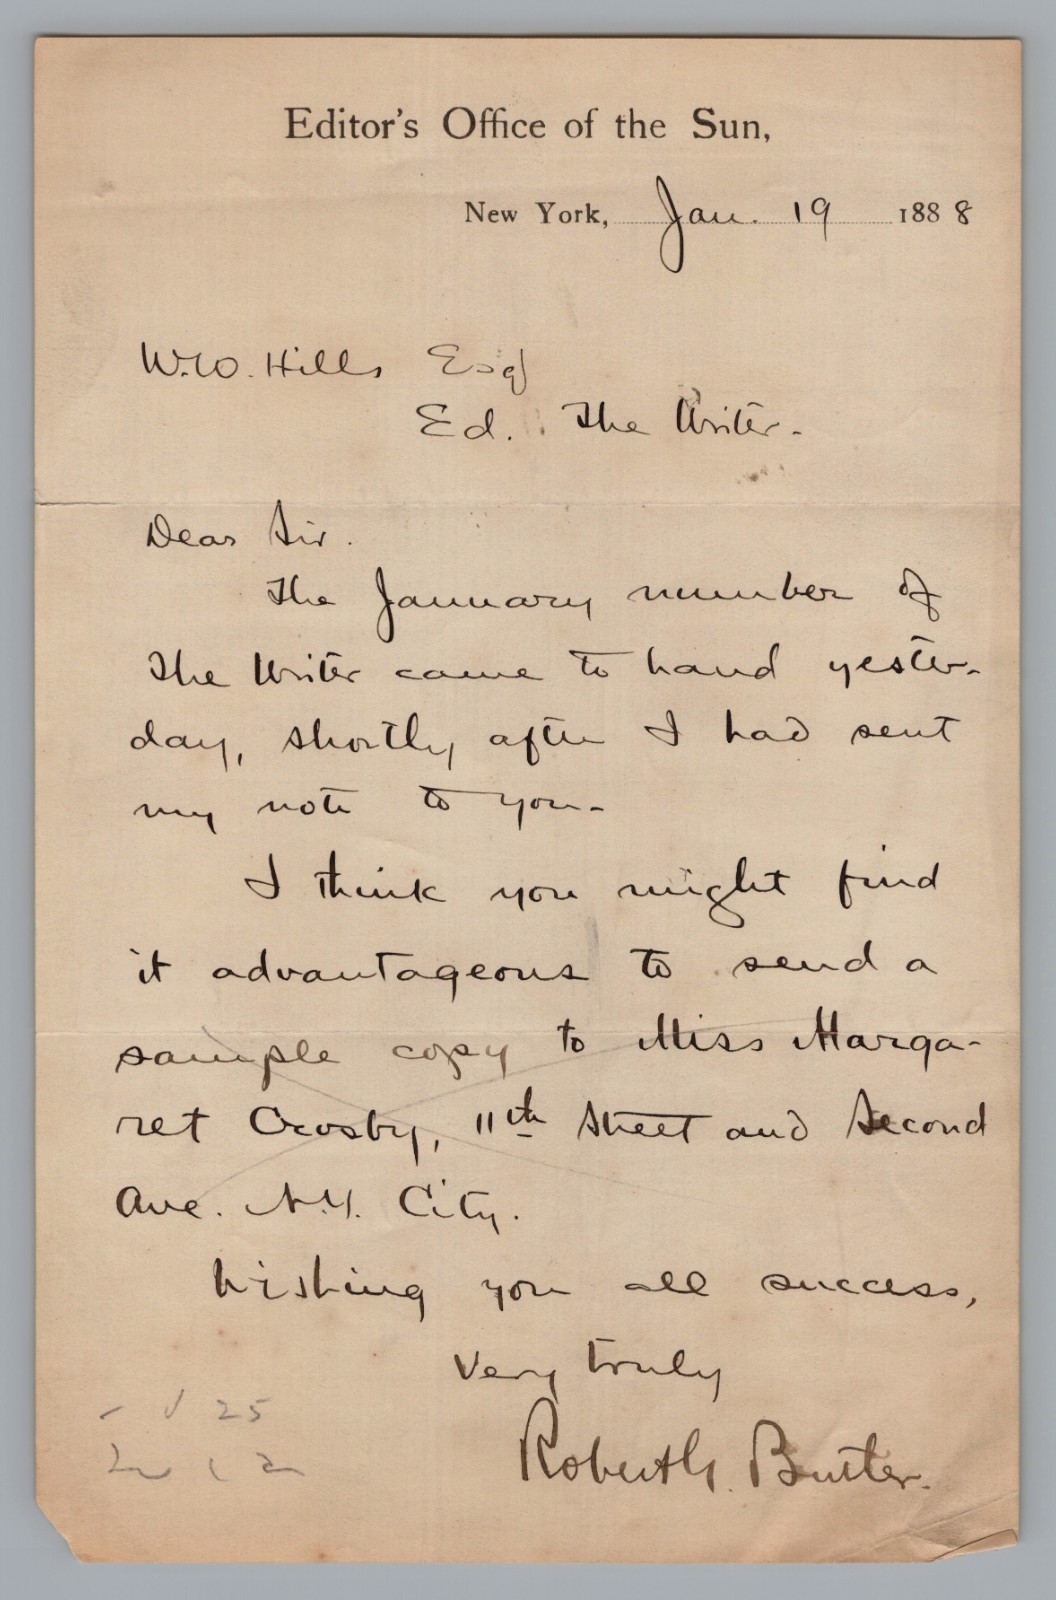 Editor's Office of the Sun,
New York, Jan. 19 1888
W. W. Hills Esq
Ed. The Writer.
Dear Sir.
The January number of
The Writer came to hand yester-
day, shortly after I had sent
my note to you.
I think you might find
it advantageous to send a
sample copy to Miss Marga-
ret Crosby, 11th Street and Second
Ave. N.Y. City.
Wishing you all success,
Very truly
Robert G. Butler.
25